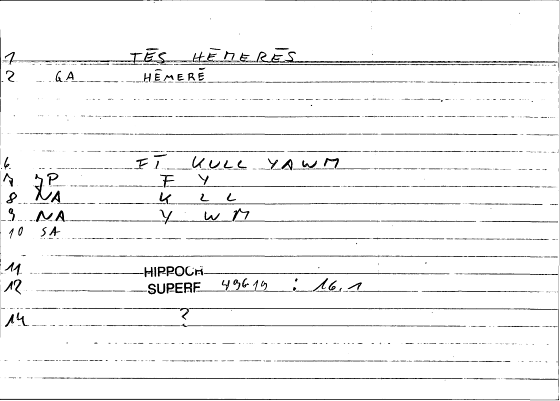 1 TĒS HĒMERĒS
2 GA HĒMERĒ
6 FĪ KULL YAWM
7 JP F Y
8 NA K L L
9 NA Y W M
10 SA
11 HIPPOCR
12 SUPERF 49619 : 16.1
14 ?